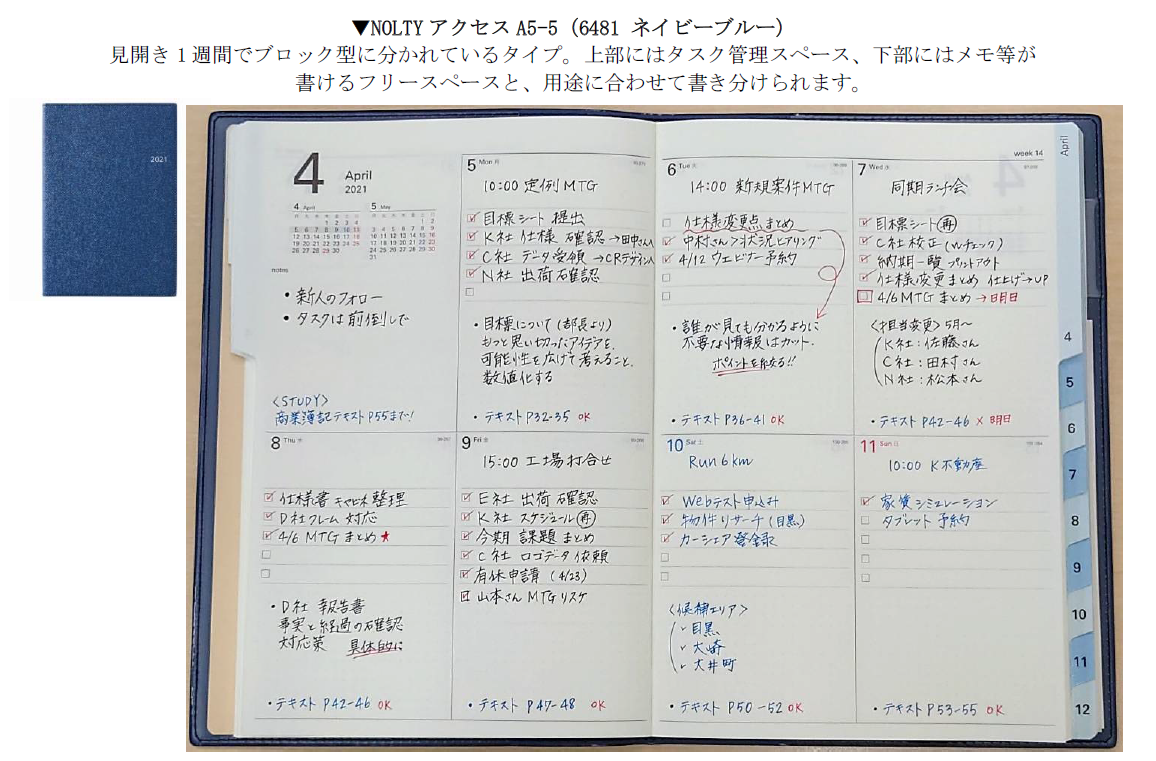 ▼NOLTY アクセス A5-5（6481 ネイビーブルー）
見開き１週間でブロック型に分かれているタイプ。上部にはタスク管理スペース、下部にはメモ等が
書けるフリースペースと、用途に合わせて書き分けられます。
2021
4
April
2021
4 April
5 May
notes
・新人のフォロー
・タスクは前倒しで
〈STUDY〉
商業簿記テキストP55まで!
5 Mon 月
10:00 定例MTG
目標シート 提出
K社 仕様 確認 →田中さんへ
C社 データ受領 →CRデザインへ
N社 出荷確認
・目標について(部長より)
もっと思い切ったアイデアを。
可能性を広げて考えること。
数値化する
・テキストP32-35 OK
6 Tue 火
14:00 新規案件MTG
仕様変更点まとめ
中村さん>状況ヒアリング
4/12 ウェビナー予約
・誰が見ても分かるように
不要な情報はカット。
ポイントを絞る!!
・テキストP36-41 OK
week 14
7 Wed 水
同期ランチ会
目標シート(再)
C社校正(Wチェック)
納期一覧 プリントアウト
仕様変更まとめ 仕上げ→UP
4/6MTGまとめ →明日
〈担当変更〉5月〜
K社:佐藤さん
C社:田村さん
N社:松本さん
・テキストP42-46 × 明日
8 Thu 木
仕様書 キャビネ整理
D社クレーム対応
4/6 MTG まとめ★
・D社 報告書
事実と経過の確認
対応策 具体的に
・テキスト P42-46 OK
9 Fri 金
15:00 工場打合せ
E社 出荷確認
K社 スケジュール(再)
今期 課題まとめ
C社 ロゴデータ依頼
有休申請 (4/23)
山本さんMTGリスケ
・テキスト P47-48 OK
10 Sat 土
Run 6km
Webテスト申込み
物件リサーチ(目黒)
カーシェア登録
〈候補エリア〉
・目黒
・大崎
・大井町
・テキスト P50-52 OK
11 Sun 日
10:00 K不動産
家賃シミュレーション
タブレット予約
・テキスト P53-55 OK
April
4
5
6
7
8
9
10
11
12